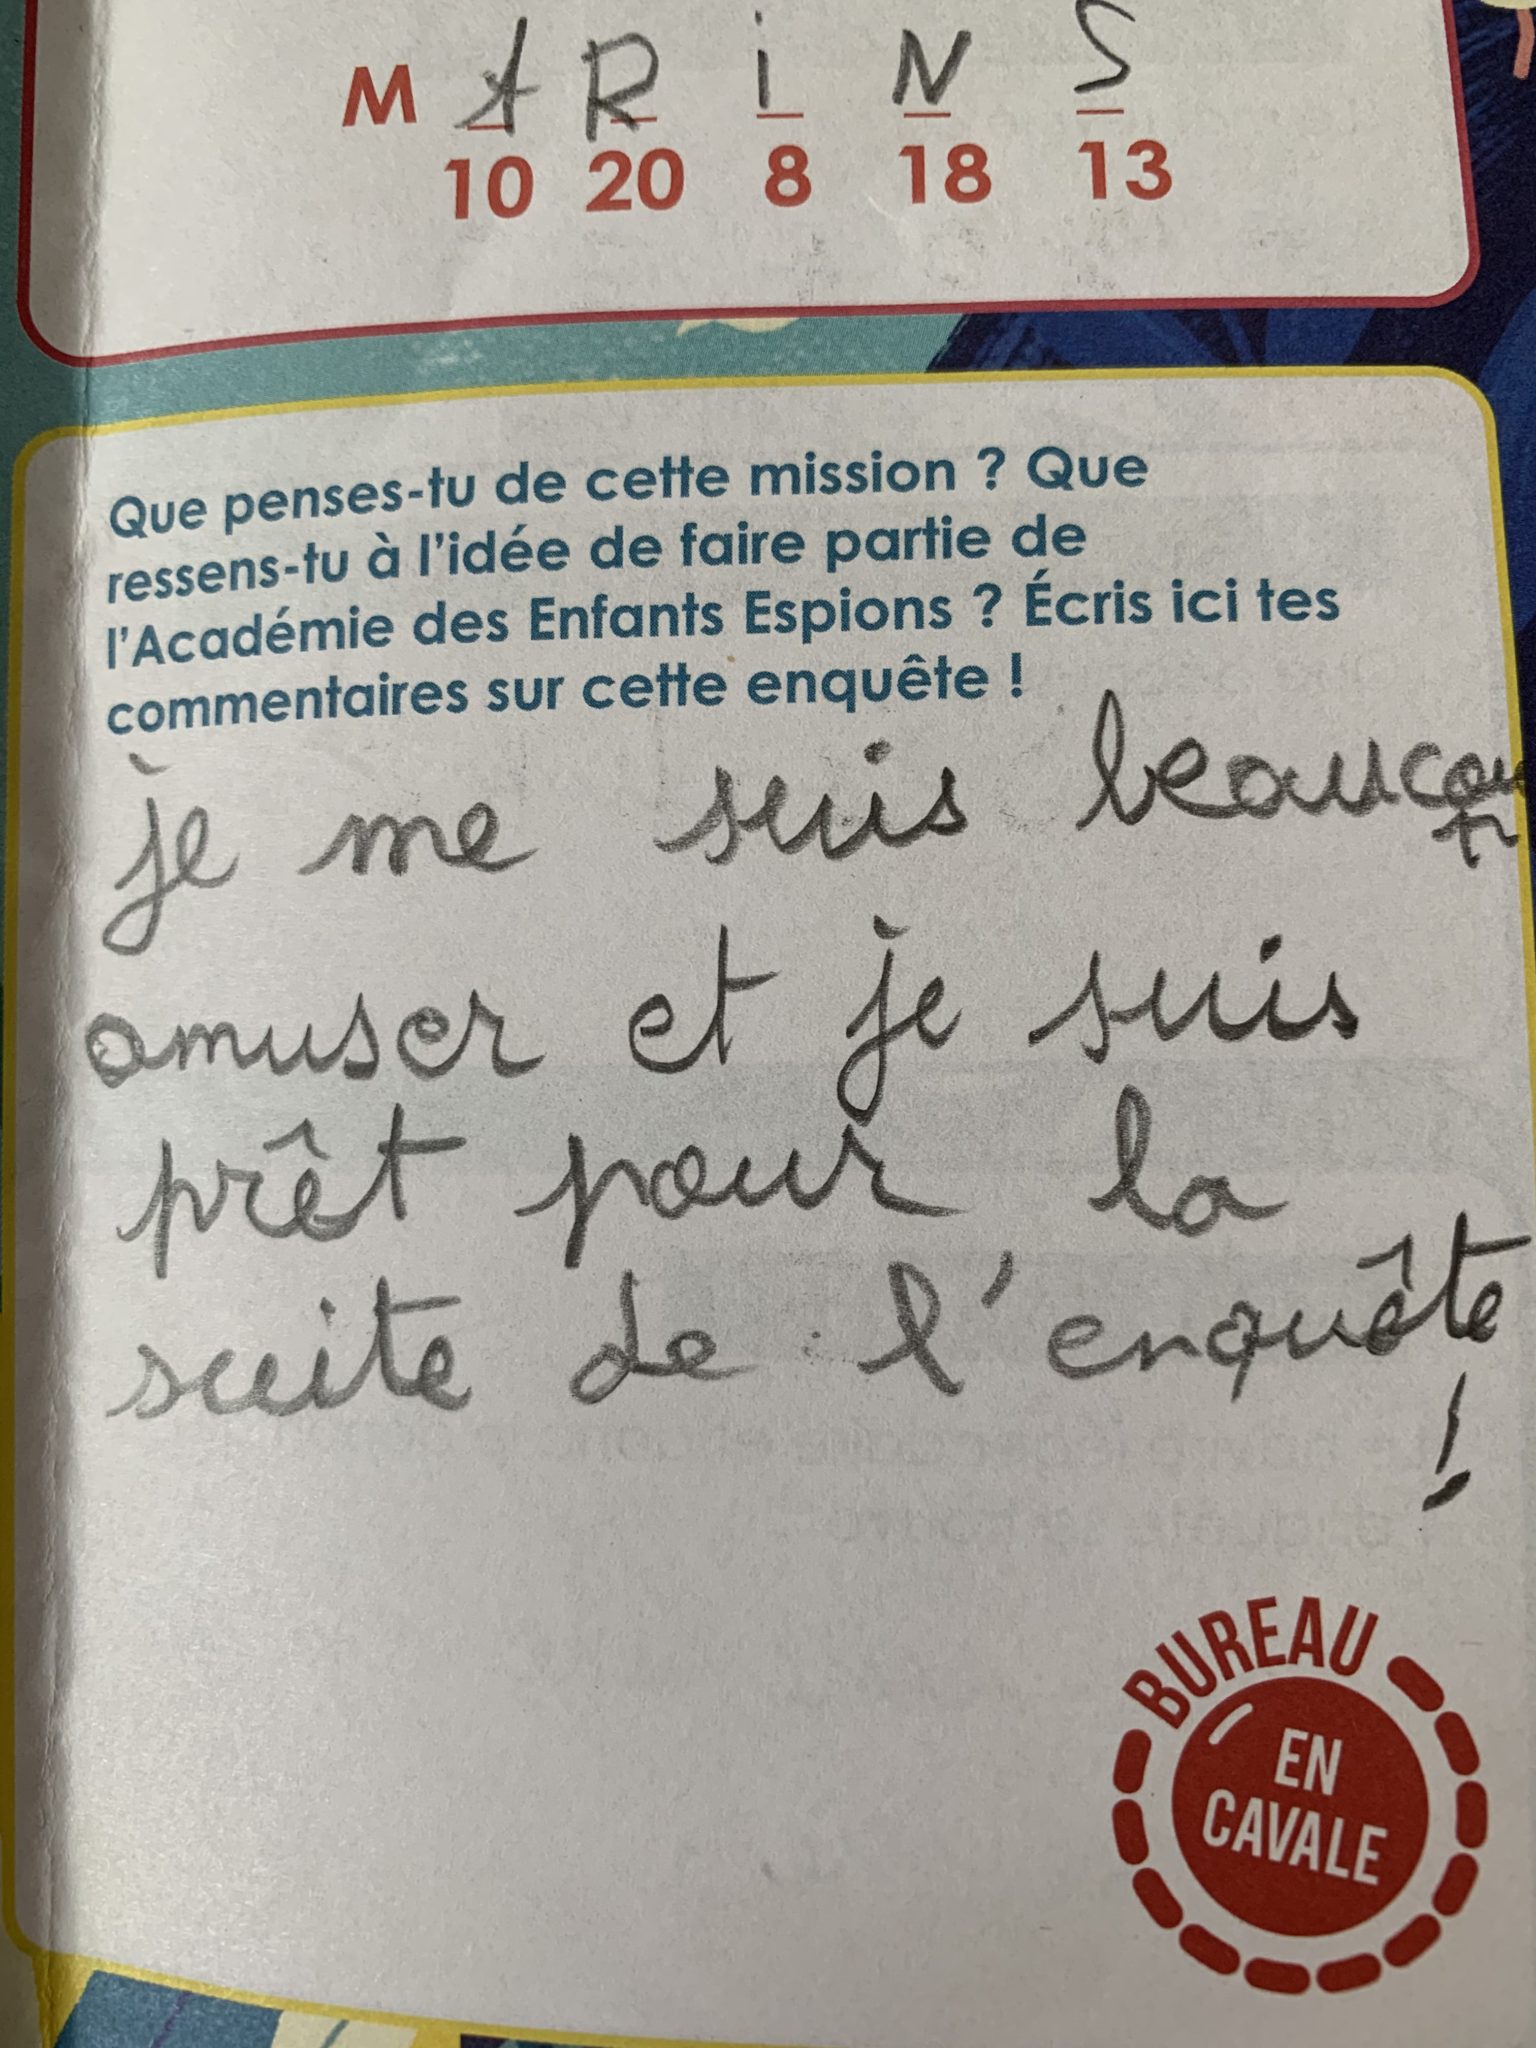 M A R i N S
10 20 8 18 13
Que penses-tu de cette mission ? Que
ressens-tu à l'idée de faire partie de
l'Académie des Enfants Espions ? Écris ici tes
commentaires sur cette enquête !
je me suis beaucou
p
amuser et je suis
prêt pour la
suite de l'enquête
!
BUREAU
EN
CAVALE